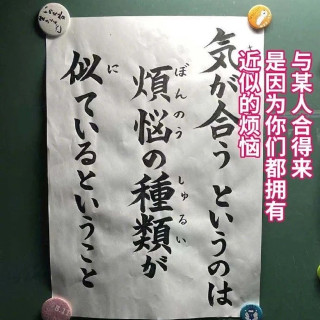 気が合うというのは
煩悩の種類が
ぼんのう しゅるい
似ているということ
に
与某人合得来
是因为你们都拥有
近似的烦恼